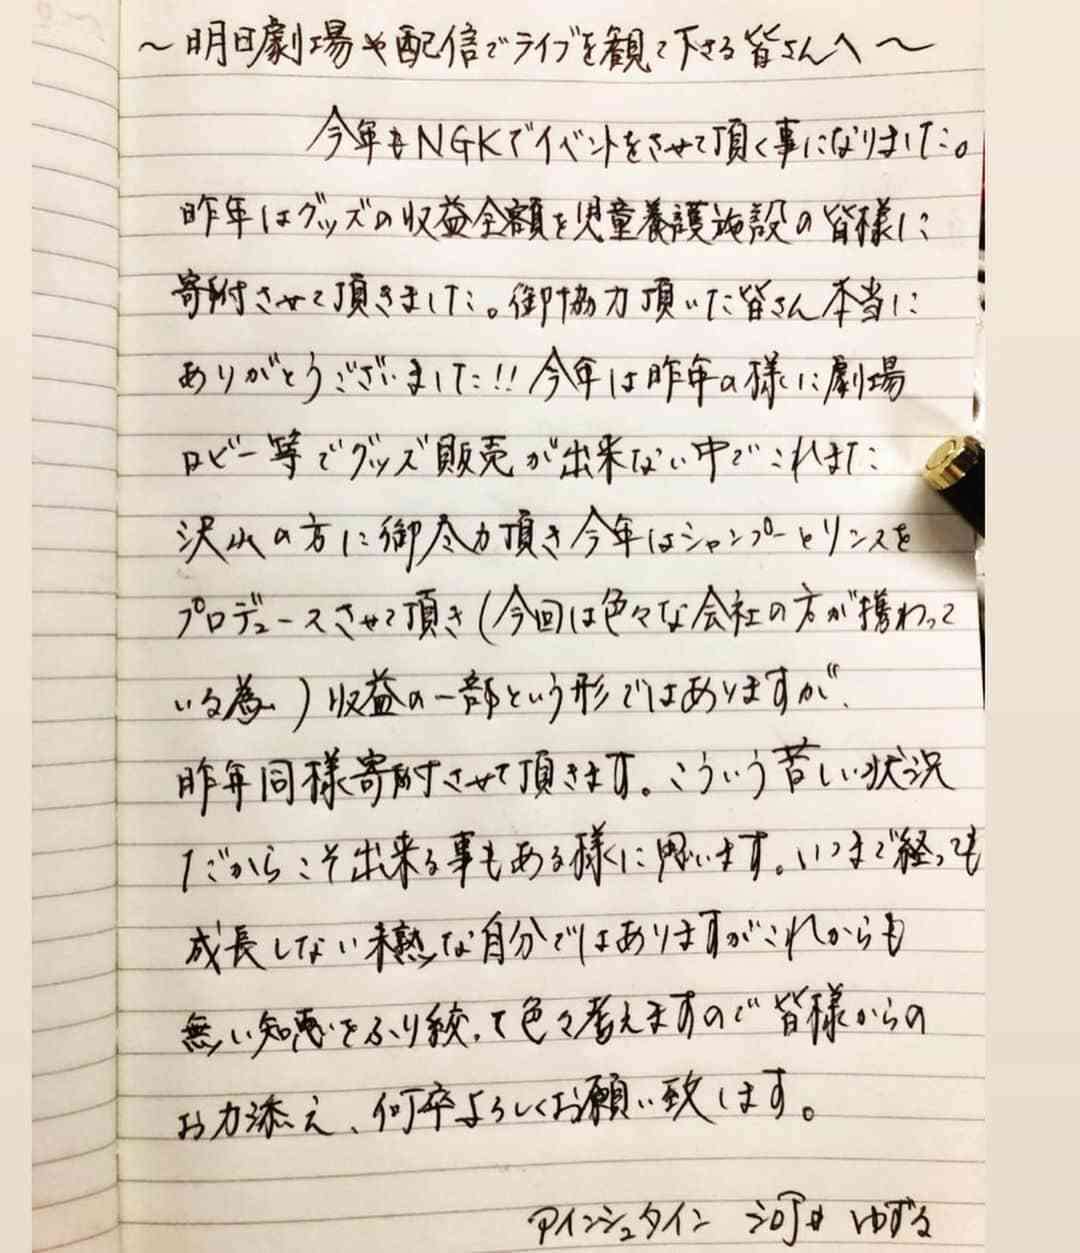 〜明日劇場や配信でライブを観て下さる皆さんへ〜
今年もNGKでイベントをさせて頂く事になりました。
昨年はグッズの収益全額を児童養護施設の皆様に
寄附させて頂きました。御協力頂いた皆さん本当に
ありがとうございました!!今年は昨年の様に劇場
ロビー等でグッズ販売が出来ない中でこれまた
沢山の方に御尽力頂き今年はシャンプーとリンスを
プロデュースさせて頂き(今回は色々な会社の方が携わって
いる為)収益の一部という形ではありますが、
昨年同様寄附させて頂きます。こういう苦しい状況
だからこそ出来る事もある様に思います。いつまで経っても
成長しない未熟な自分ではありますがこれからも
無い知恵をふり絞って色々考えますので皆様からの
お力添え、何卒よろしくお願い致します。
アインシュタイン 河井ゆずる